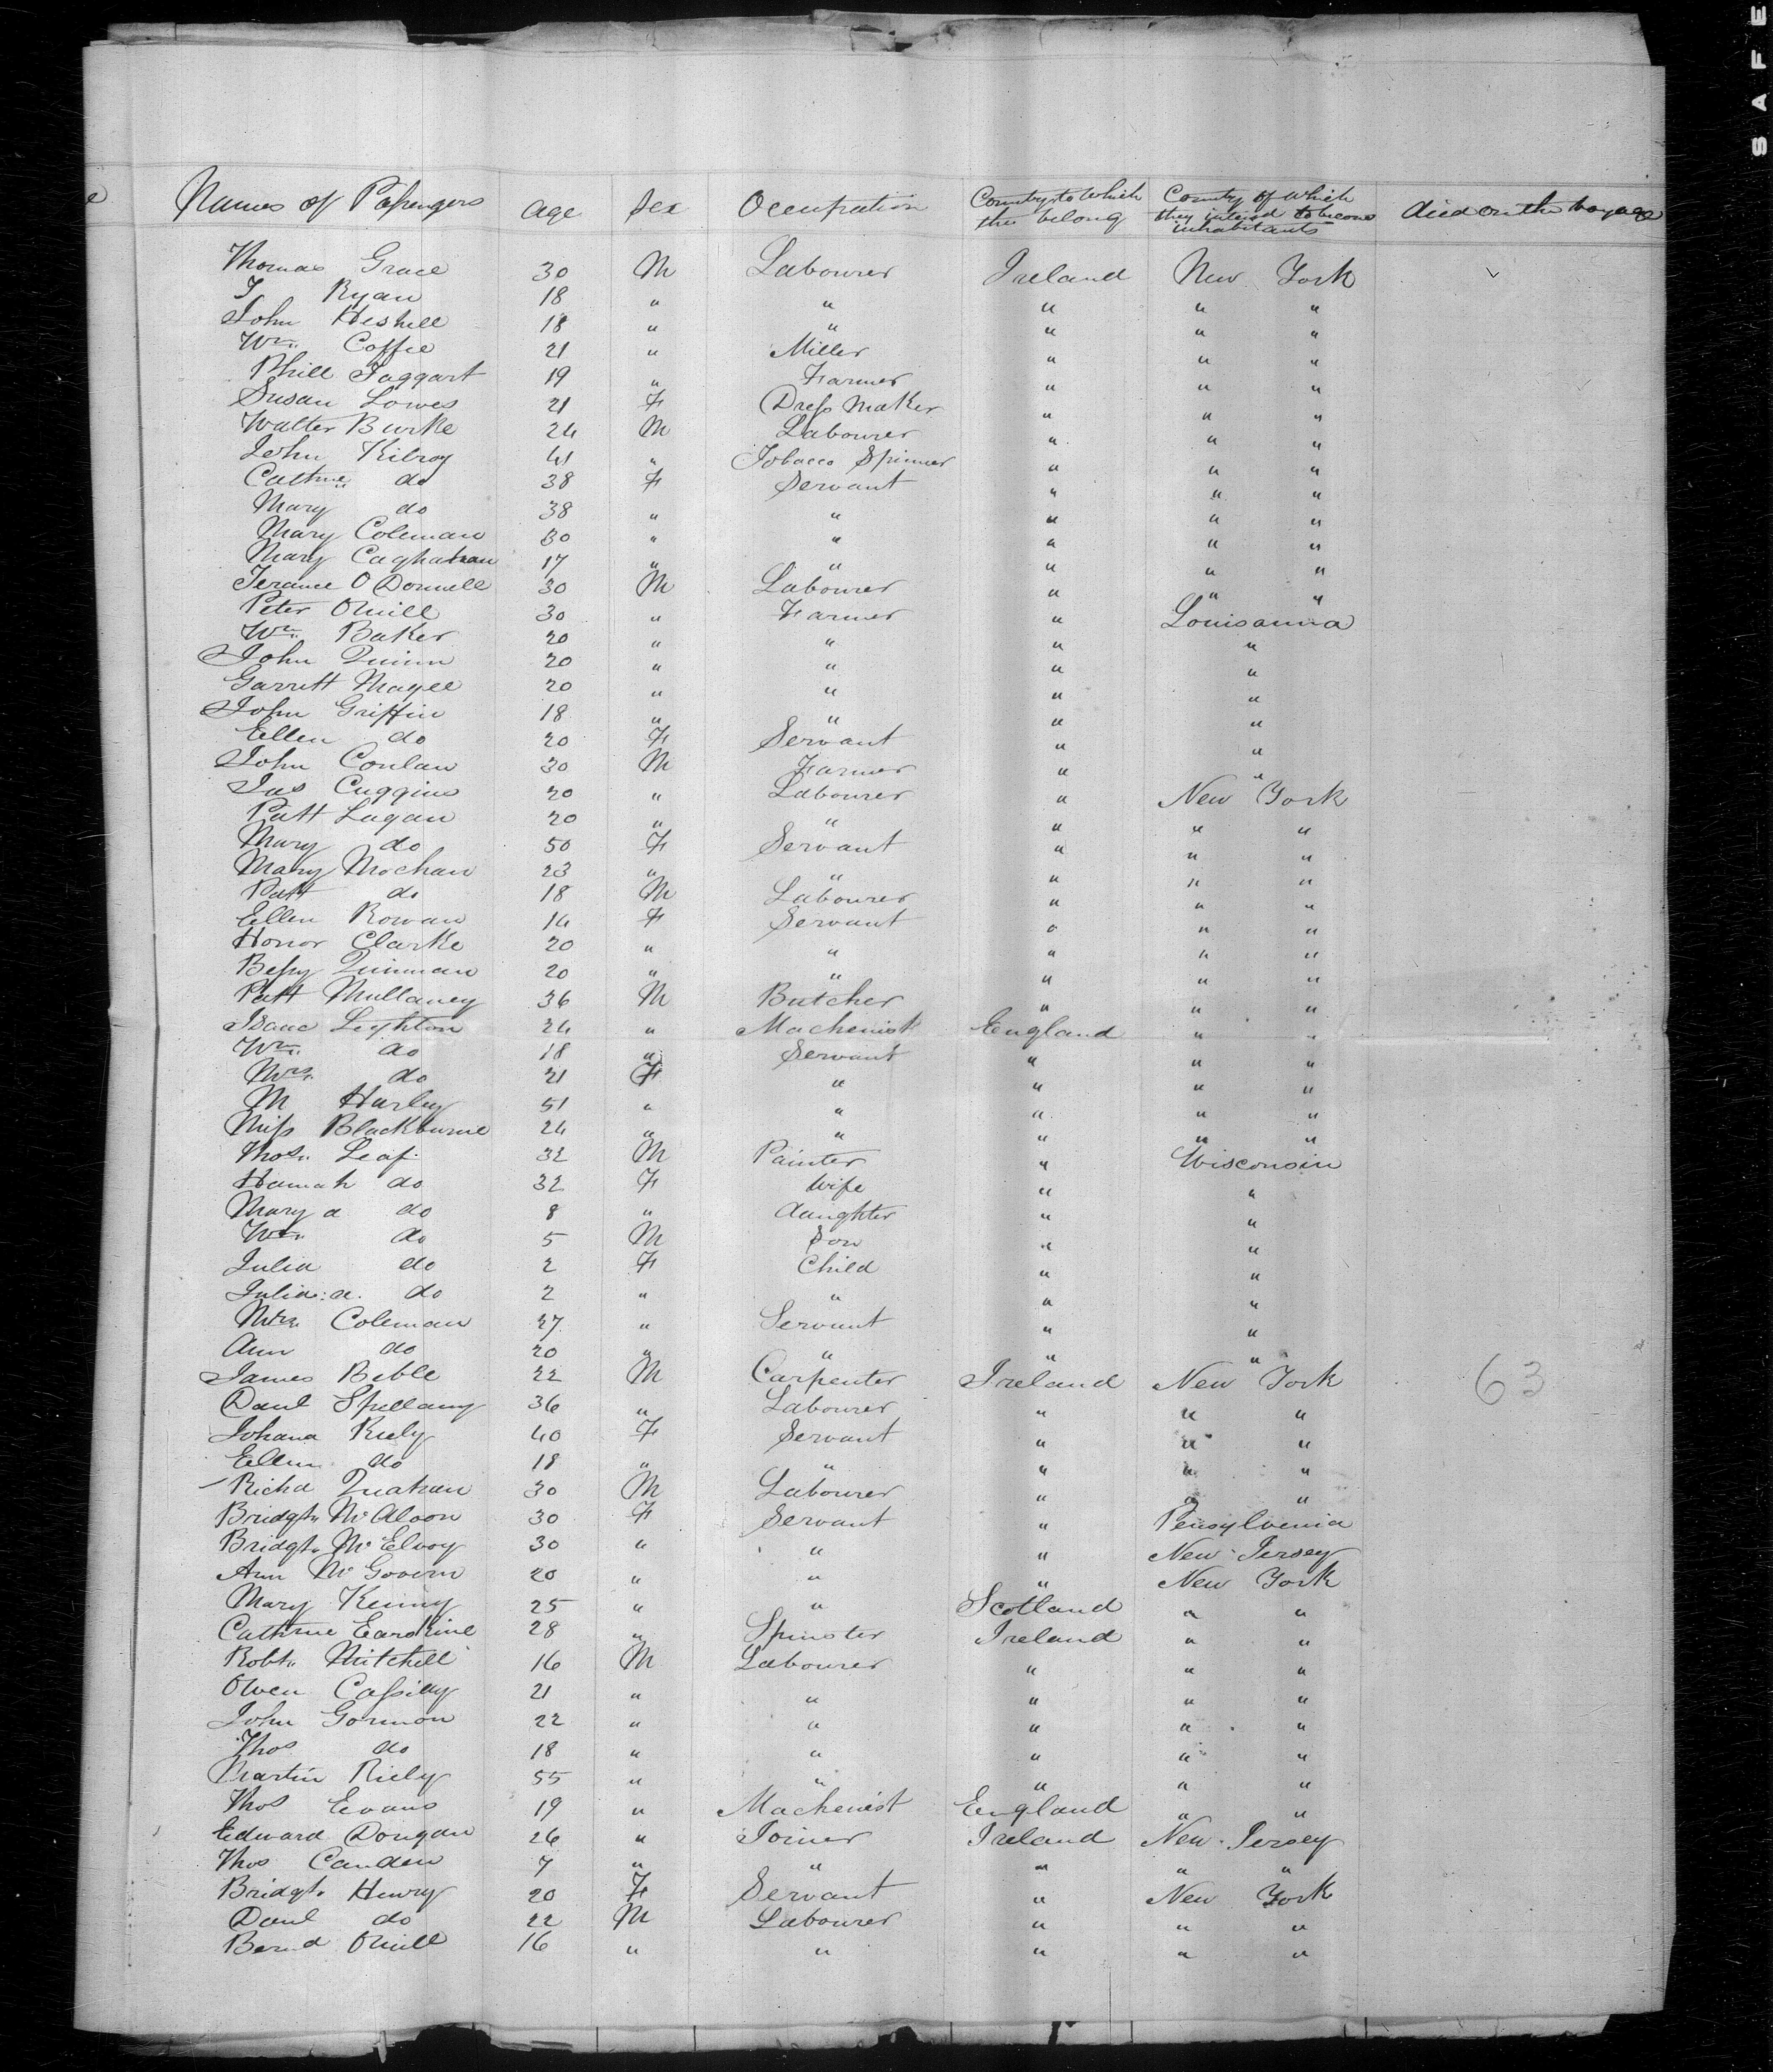 Names of Passengers Age Sex Occupation Country to Which the belong Country of Which they intend to become inhabitants died on the voyage
Thomas Grace 30 M Labourer Ireland New York
T Ryan 18 " " " " "
John Heshell 18 " " " " "
Wm. Coffee 21 " Miller " " "
Phill Taggart 19 " Farmer " " "
Susan Lowes 21 F Dress Maker " " "
Walter Burke 24 M Labourer " " "
John Kilroy 41 " Tobacco Spinner " " "
Cathne do 38 F Servant " " "
Mary do 38 " " " " "
Mary Coleman 30 " " " " "
Mary 17 " " " " "
Terance O Donnell 30 M Labourer " " "
Peter ONeill 30 " Farmer " Louisanna
Wm. Baker 20 " " " "
John Quinn 20 " " " "
Garrett Magee 20 " " " "
John Griffin 18 " " " "
Ellen do 20 F Servant " "
John Conlan 30 M Farmer " "
Jas Cuggins 20 " Labourer " New York
Patt Lagan 20 " " " " "
Mary do 50 F Servant " " "
Mary Mochan 23 " " " " "
Patt do 18 M Labourer " " "
Ellen Rowan 14 F Servant " " "
Honor Clarke 20 " " " " "
Bessy Quinnan 20 " " " " "
Patt Mullaney 36 M Butcher " " "
Isaac Leyhton 24 " Machenist England " "
Wm. do 18 " Servant " " "
Mrs. do 21 F " " " "
M Hurley 51 " " " " "
Miss Blackburne 24 " " " " "
Thos. Leaf 32 M Painter " Wisconsin
Hannah do 32 F Wife " "
Mary a do 8 " daughter " "
Wm. do 5 M Son " "
Julia do 2 F Child " "
Julia. a. do 2 " " " "
Mrs. Coleman 27 " Servant " "
Ann do 20 " " " "
James Beble 22 M Carpenter Ireland New York 63
Danl Spellany 36 " Labourer " " "
Johana Riely 40 F Servant " " "
Ellen do 18 " " " " "
Richd 30 M Labourer " " "
Bridgt. McAloon 30 F Servant " Pensylvenia
Bridgt. McElvoy 30 " " " New Jersey
Ann McGovern 20 " " " New York
Mary Kenny 25 " " Scotland " "
Cathrine Earskine 28 " Spinster Ireland " "
Robt. Mitchell 16 M Labourer " " "
Owen Cassidy 21 " " " " "
John Gormon 22 " " " " "
Thos do 18 " " " " "
Martin Riely 55 " " " " "
Thos Evans 19 " Machenist England " "
Edward Dougan 26 " Joiner Ireland New Jersey
Thos Canden 7 " " " " "
Bridgt. Henry 20 F Servant " New York
Danl do 22 M Labourer " " "
Bernd ONeill 16 " " " " "
SAFE